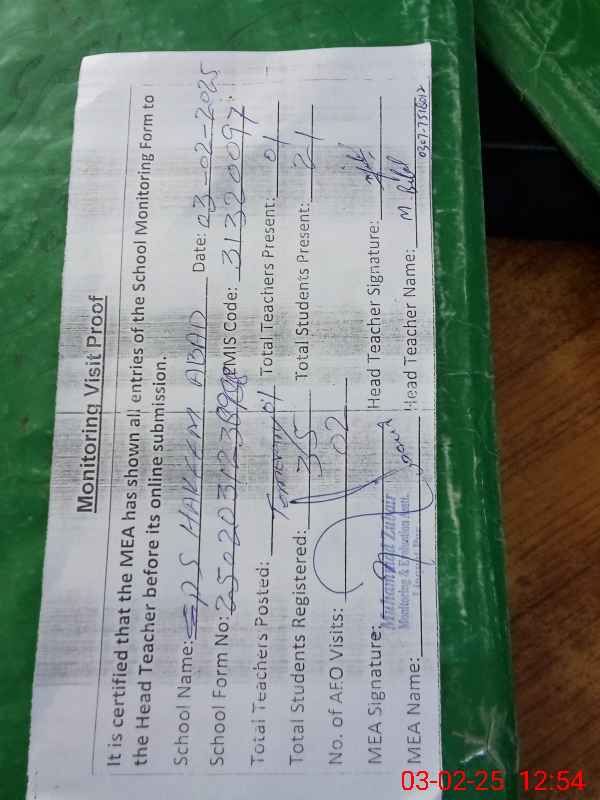 Monitoring Visit Proof
It is certified that the MEA has shown all entries of the School Monitoring Form to
the Head Teacher before its online submission.
School Name: HAKEEM ABAD Date: 03-02-2025
School Form No: EMIS Code: 31320097
Total Teachers Posted: Temporary 01 Total Teachers Present: 01
Total Students Registered: 35 Total Students Present: 21
No. of AEO Visits: 02
MEA Signature: Head Teacher Signature:
Muhammad Zubair
Monitoring & Evaluation Asstt.
MEA Name: Head Teacher Name: M. Bilal
0307-7516012
03-02-25 12:54